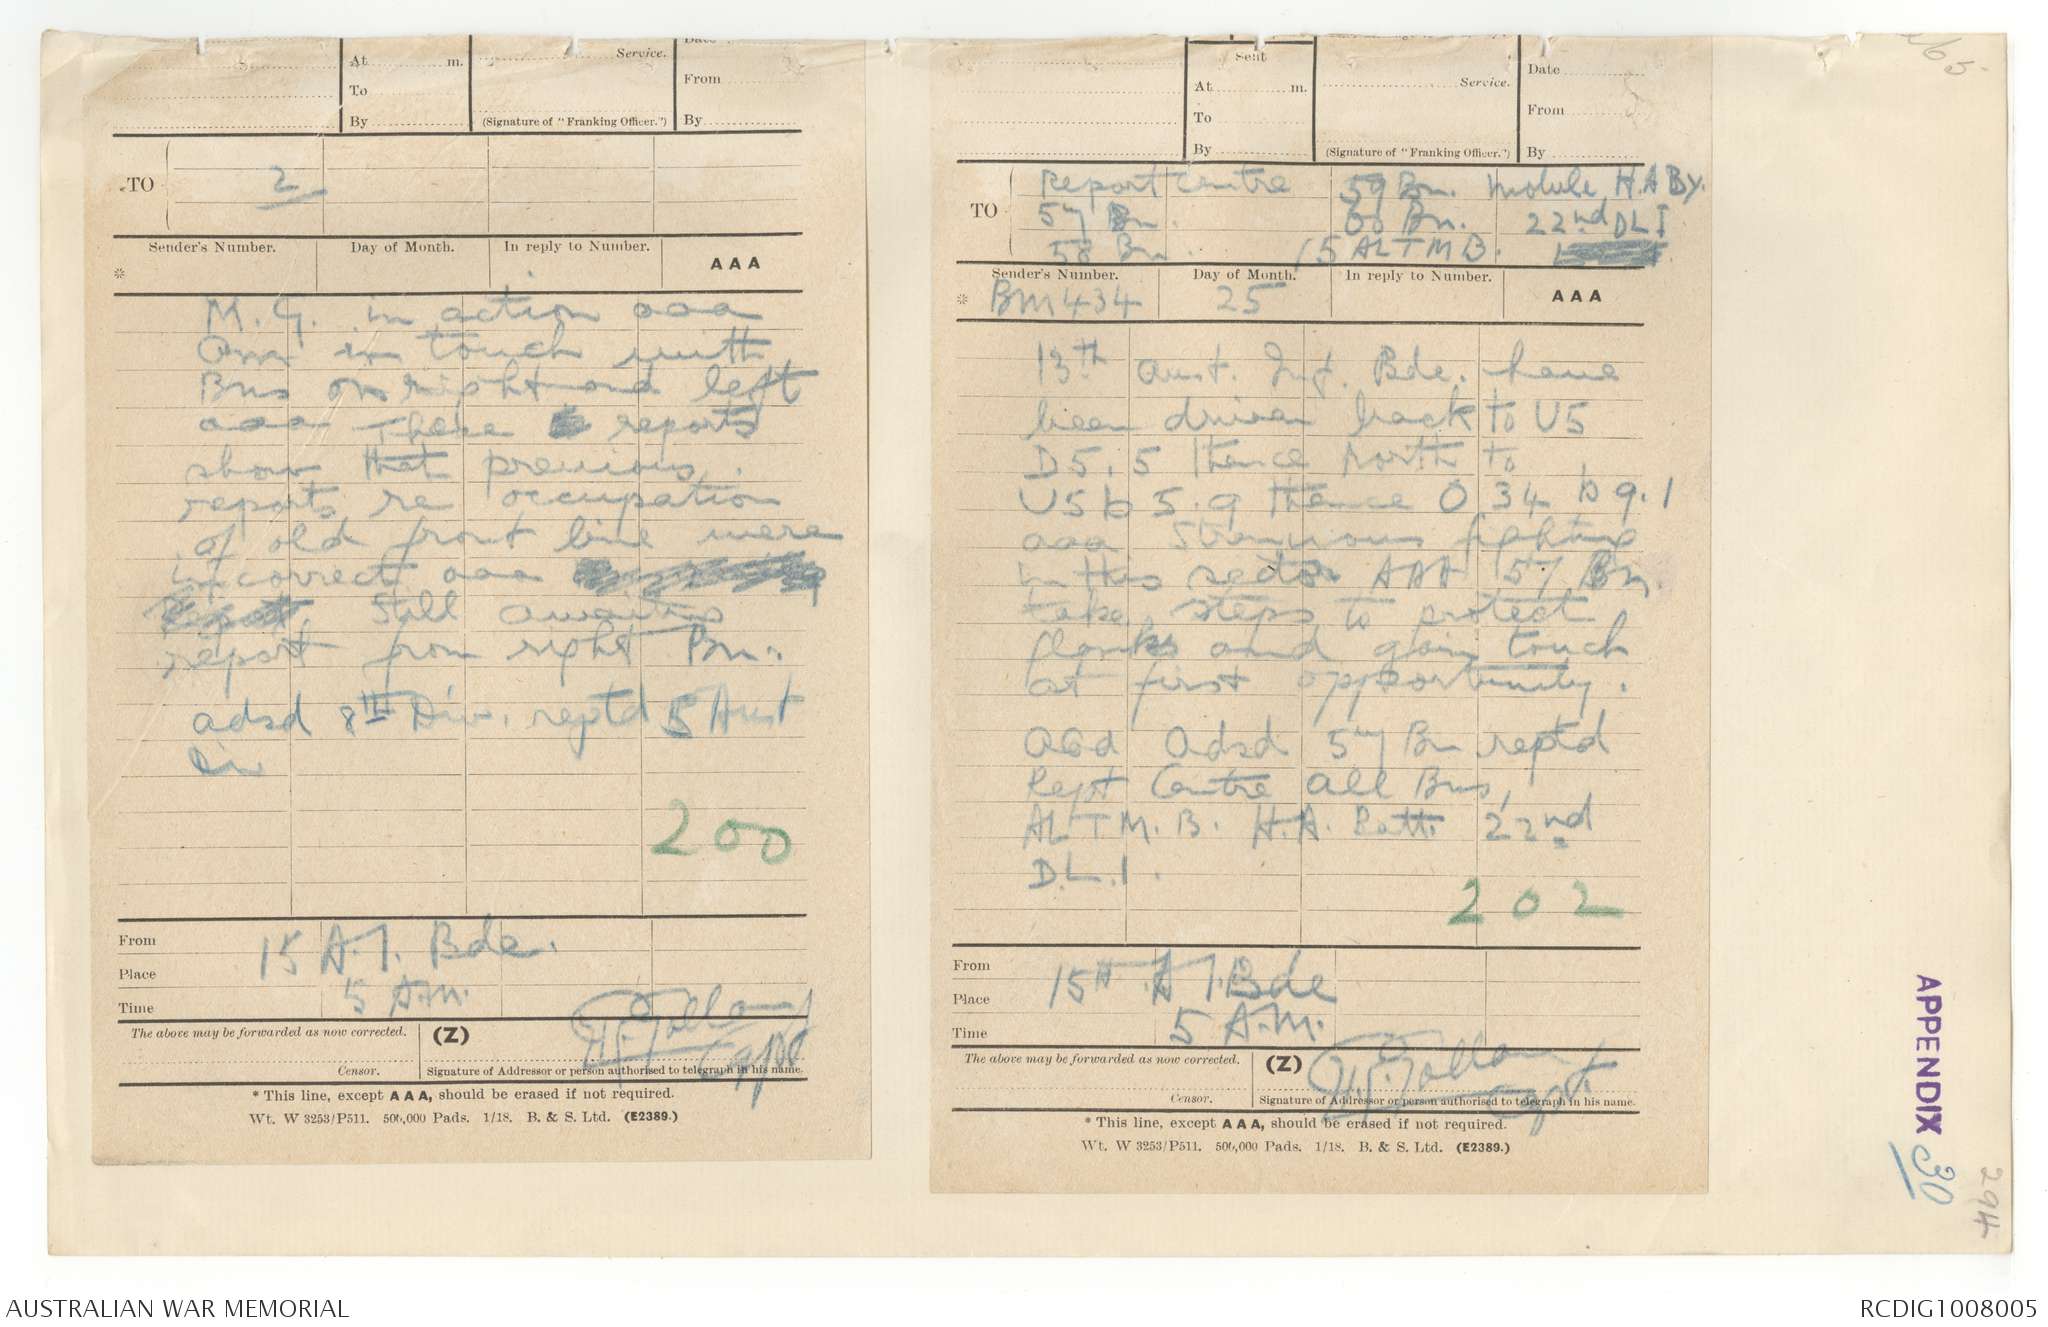 At ........ m.
To
By
Service.
(Signature of "Franking Officer.")
Date
From
By
TO
2
Sender's Number.
Day of Month.
In reply to Number.
AAA
*
M.G. in action aaa
Am in touch with
Bns on right and left
aaa These reports
show that previous
reports re occupation
of old front line were
incorrect aaa
Still awaiting
report from right Bn.
adsd 8th Div. reptd 5 Aust
Div
200
From
15 A.I. Bde.
Place
Time
5 A.M.
The above may be forwarded as now corrected.
(Z)
Capt
Censor.
Signature of Addressor or person authorised to telegraph in his name.
* This line, except AAA, should be erased if not required.
Wt. W 3253/P511. 500,000 Pads. 1/18. B. & S. Ltd. (E2389.)
Sent
At ........ m.
To
By
Service.
(Signature of "Franking Officer.")
Date
From
By
TO
Report Centre 59 Bn. Mobile H.A By.
57 Bn. 60 Bn. 22nd DLI
58 Bn. 15 ALTMB.
Sender's Number.
Day of Month.
In reply to Number.
AAA
*
BM434
25
13th Aust. Inf. Bde. have
been driven back to U5
D5.5 thence North to
U5b 5.9 thence O.34 b 9.1
aaa Strenuous fighting
in this sector AAA 57 Bn.
take steps to protect
flanks and gain touch
at first opportunity.
aaa adsd 57 Bn reptd
Rept Centre all Bns,
ALTM.B. H.A. Batt. 22nd
D.L.I.
202
From
15th A.I.Bde
Place
Time
5 A.M.
The above may be forwarded as now corrected.
(Z)
Capt.
Censor.
Signature of Addressor or person authorised to telegraph in his name.
* This line, except AAA, should be erased if not required.
Wt. W 3253/P511. 500,000 Pads. 1/18. B. & S. Ltd. (E2389.)
APPENDIX 30
294
AUSTRALIAN WAR MEMORIAL
RCDIG1008005